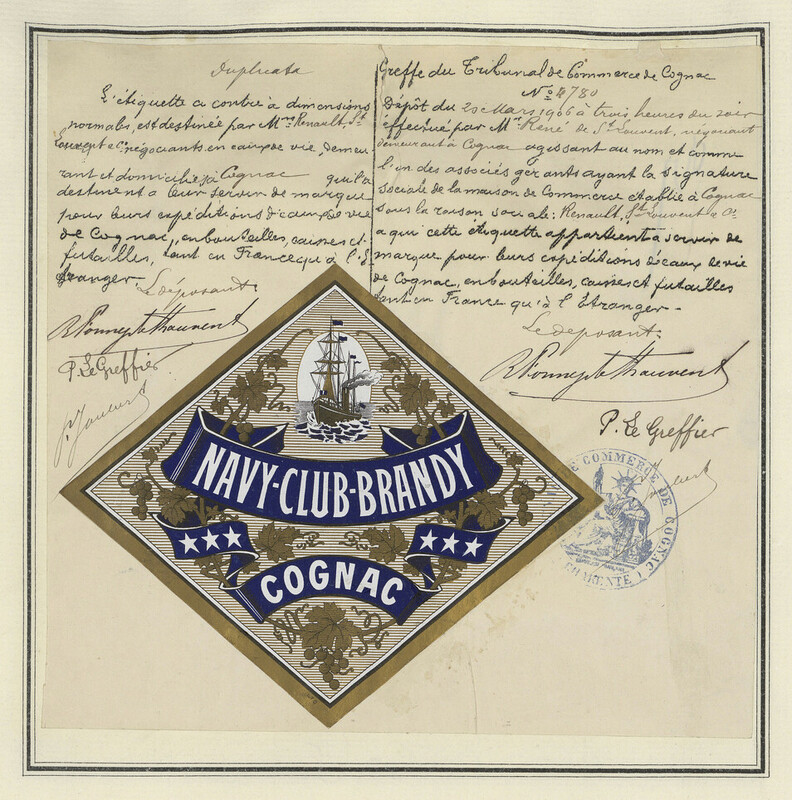 Duplicata
L'étiquette ci contre à dimensions
normales, est destinée par Mrs Renault, St
Louvent & Cie négociants en eaux de vie, demeu
rant et domiciliés à Cognac qu'ils
destinent à leur servir de marque
pour leurs expéditions d'eaux de vie
de Cognac, en bouteilles, caisses et
futailles, tant en France qu'à l'E
tranger
Le déposant
P. Le Greffier
Greffe du Tribunal de Commerce de Cognac
No 4780
Dépôt du 20 Mars 1906 à trois heures du soir
effectué par Mr René de St Louvent, négociant
demeurant à Cognac agissant au nom et comme
l'un des associés gérants ayant la signature
sociale de la maison de Commerce établie à Cognac
sous la raison sociale: Renault, St Louvent & Cie
à qui cette étiquette appartient à servir de
marque pour leurs expéditions d'eaux de vie
de Cognac, en bouteilles, caisses et futailles
tant en France qu'à l'Etranger -
Le deposant:
P. Le Greffier
NAVY-CLUB-BRANDY
COGNAC
DE COMMERCE DE COGNAC
CHARENTE